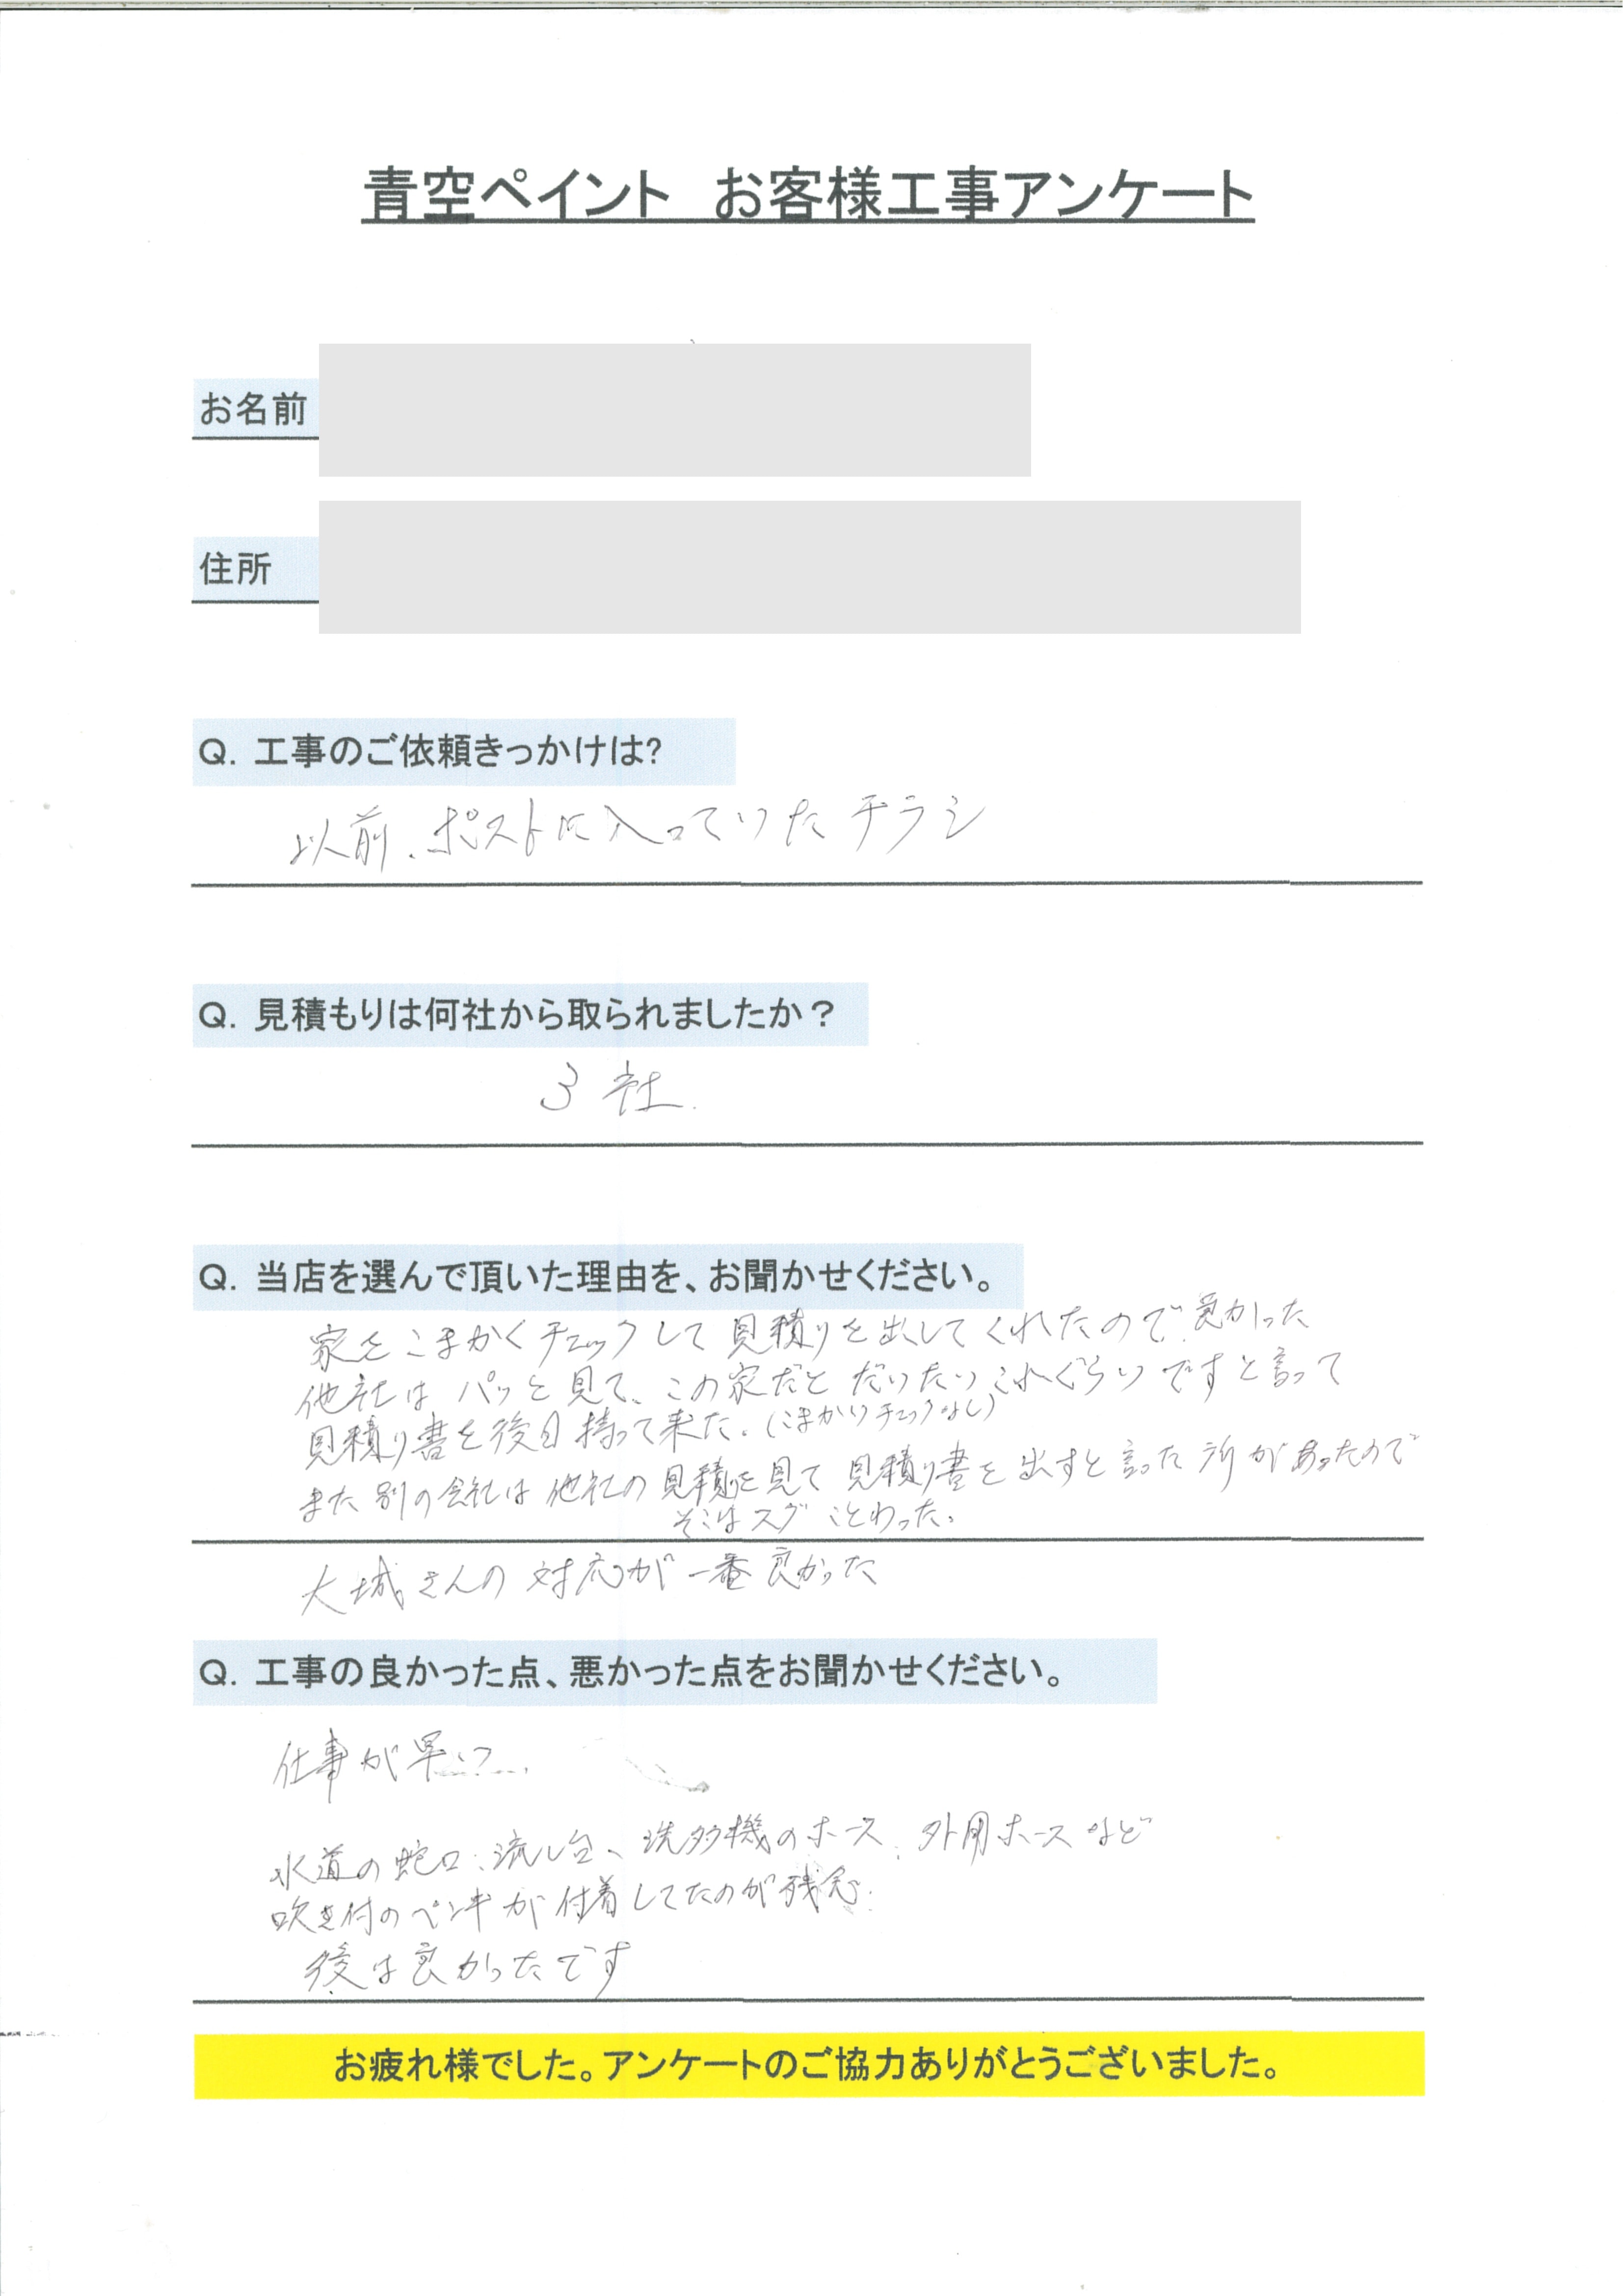 青空ペイント　お客様工事アンケート
お名前
住所
Q. 工事のご依頼きっかけは?
以前、ポストに入っていたチラシ
Q. 見積もりは何社から取られましたか？
3社.
Q. 当店を選んで頂いた理由を、お聞かせください。
家をこまかくチェックして見積りを出してくれたので良かった
他社はパッと見て、この家だとだいたいこれぐらいですと言って
見積り書を後日持って来た。(こまかいチェックなし)
また別の会社は他社の見積を見て見積り書を出すと言った所があったので
そこはスグことわった。
大城さんの対応が一番良かった
Q. 工事の良かった点、悪かった点をお聞かせください。
仕事が早い
水道の蛇口、流し台、洗多機のホース、外用ホースなど
吹き付のペンキが付着してたのが残念.
後は良かったです
お疲れ様でした。アンケートのご協力ありがとうございました。